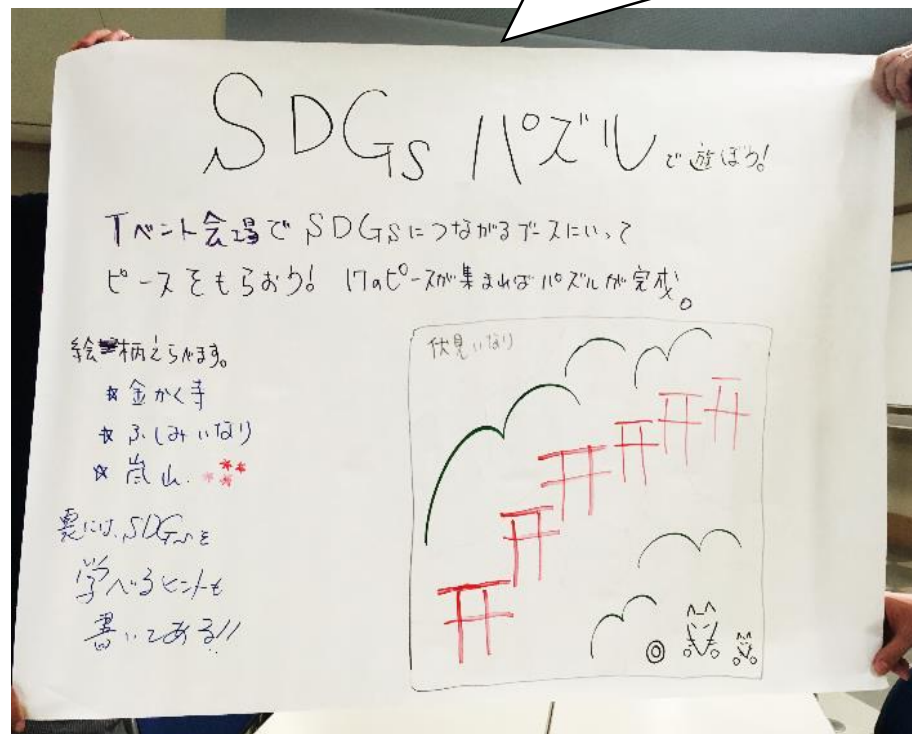 SDGs パズルで遊ぼう!
イベント会場でSDGsにつながるブースにいって
ピースをもらおう! 17のピースが集まればパズルが完成。
絵柄えらべます。
☆ 金かく寺
☆ ふしみいなり
☆ 嵐山
裏には、SDGsを
学べるヒントも
書いてある!!
伏見いなり